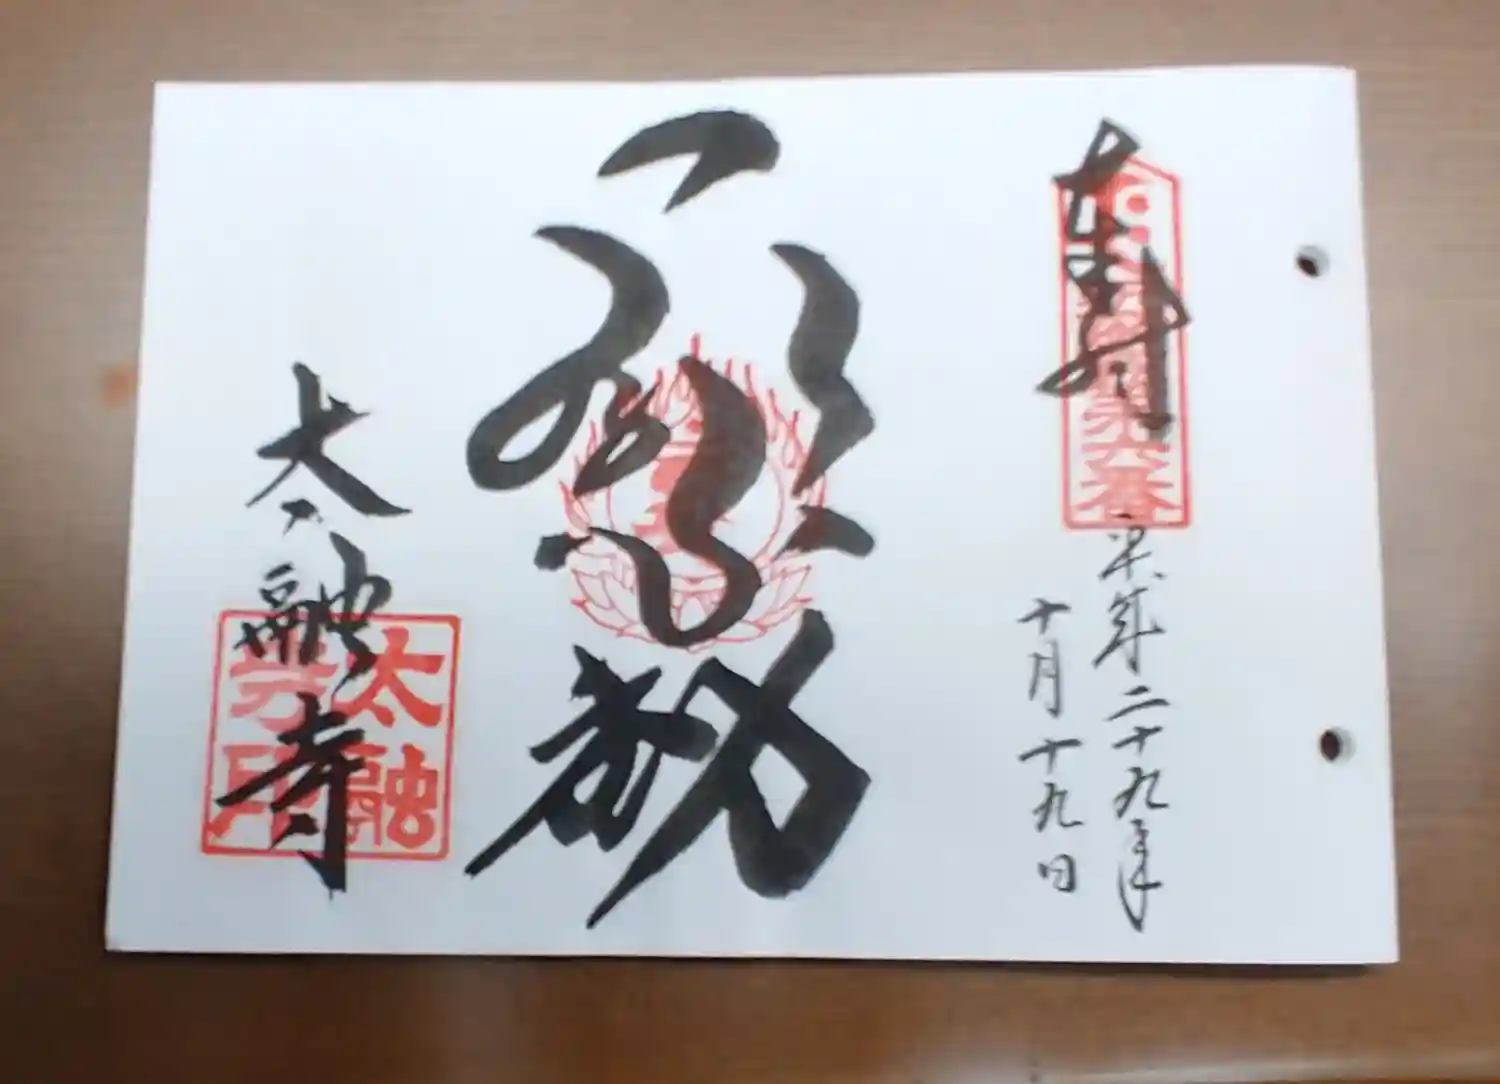 奉拝
第六番
平成二十九年
十月十九日
不動
太融寺
太融
印